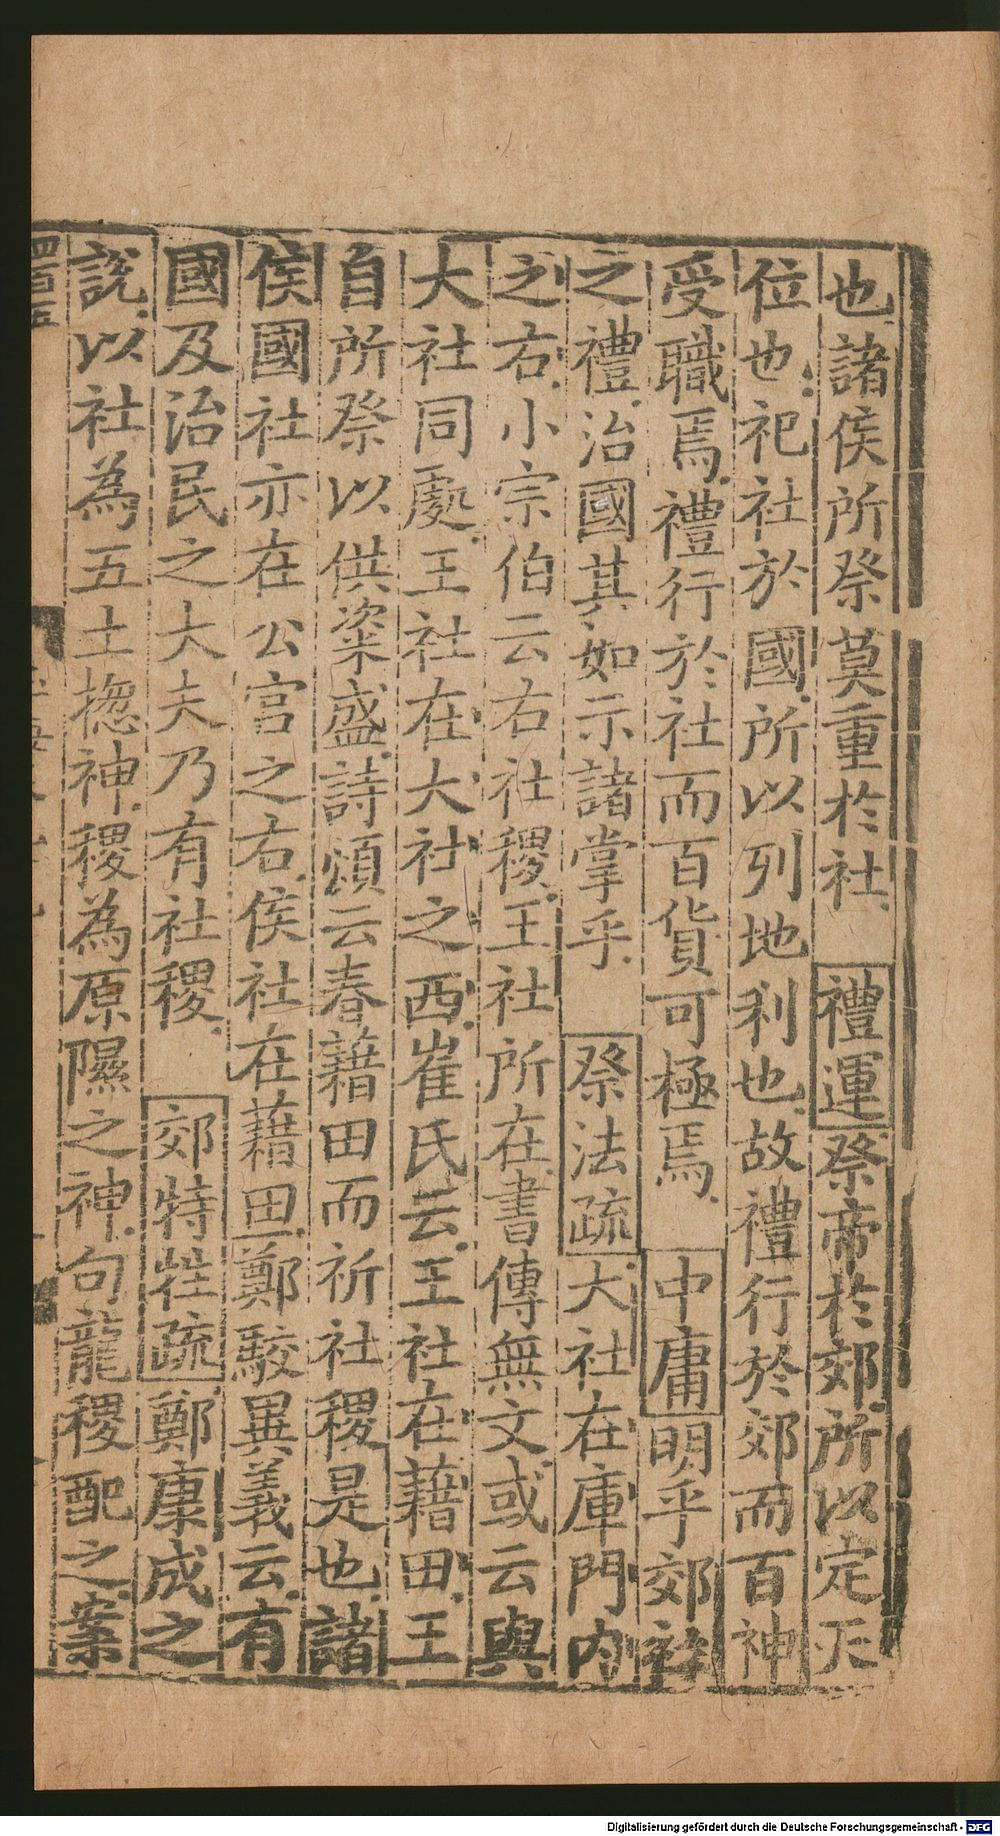 也諸侯所祭莫重於社禮運祭帝於郊所以定天
位也祀社於國所以列地利也故禮行於郊而百神
受職焉禮行於社而百貨可極焉中庸明乎郊社
之禮治國其如示諸掌乎祭法疏大社在庫門內
之右小宗伯云右社稷王社所在書傳無文或云與
大社同處王社在大社之西崔氏云王社在藉田王
自所祭以供粢盛詩頌云春藉田而祈社稷是也諸
侯國社亦在公宮之右侯社在藉田鄭駮異義云有
國及治民之大夫乃有社稷郊特牲疏鄭康成之
說以社為五土揔神稷為原隰之神句龍稷配之案
四百五
Digitalisierung gefördert durch die Deutsche Forschungsgemeinschaft - DFG